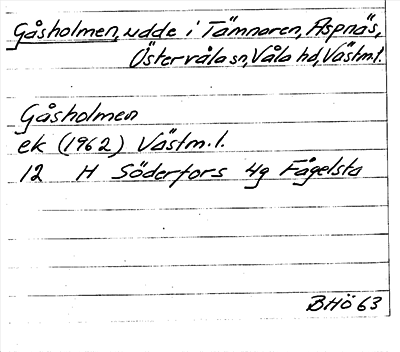 Gåsholmen, udde i Tämnaren, Aspnäs,
Östervåla sn, Våla hd, Västml.
Gåsholmen
ek (1962) Västm.l.
12 H Söderfors 4g Fågelsta
BHö 63